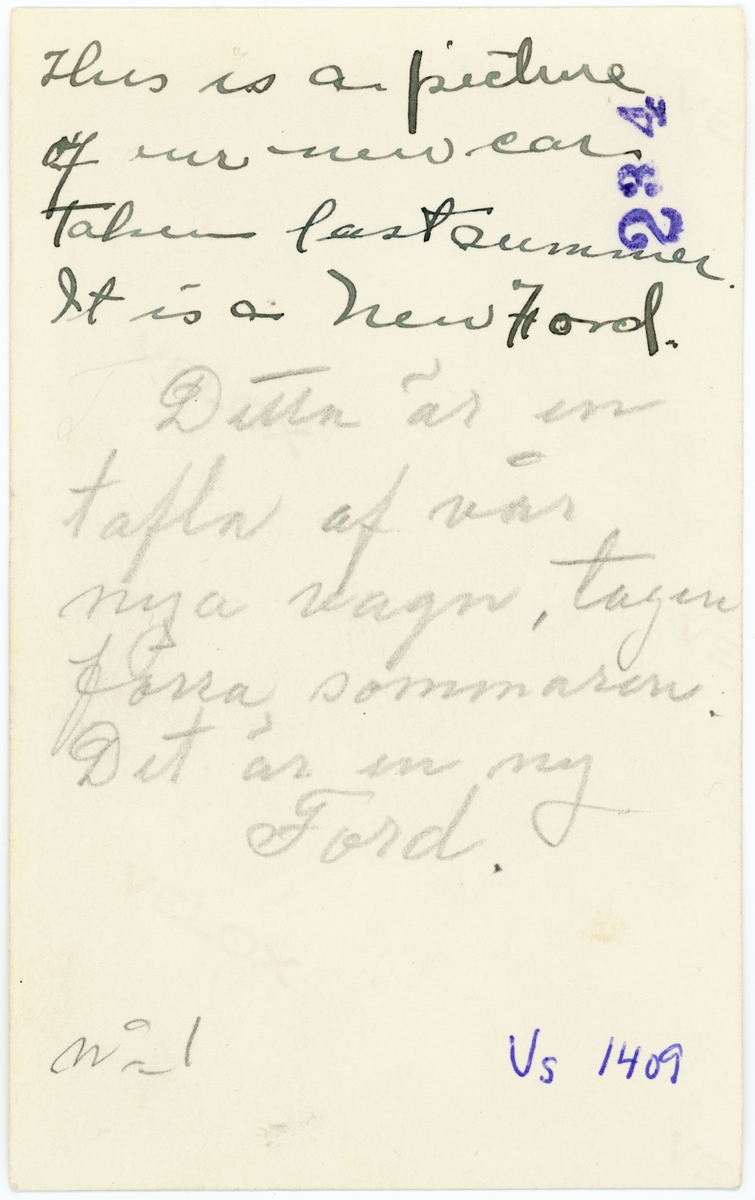 This is a picture
of our new car
taken last summer.
It is a New Ford.
234
Detta är en
tafla af vår
nya vagn, tagen
förra sommaren.
Det är en ny
Ford.
VELOX
No 1
Vs 1409